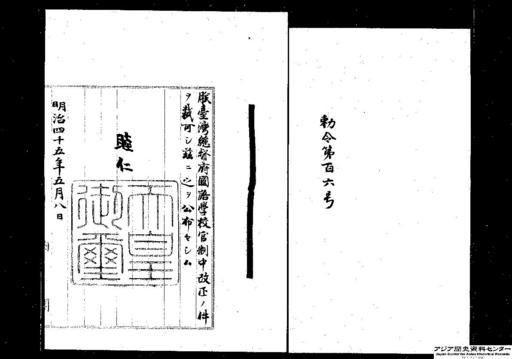 勅令第百六号
朕臺灣總督府國語學校官制中改正ノ件
ヲ裁可シ茲ニ之ヲ公布セシム
睦仁
天皇御璽
明治四十五年五月八日
アジア歴史資料センター
Japan Center for Asian Historical Records